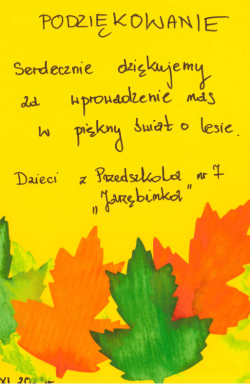 PODZIĘKOWANIE
Serdecznie dziękujemy
za wprowadzenie nas
w piękny świat o lesie.
Dzieci z Przedszkola nr 7
„Jarzębinka"